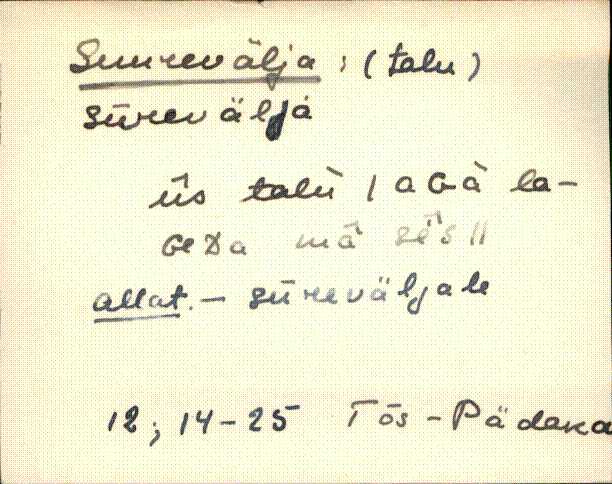 Suurevälja : (talu)
sūrevälja
üs talū | aGà la-
GeDa mā sēs ||
allat. - sūreväljale
12; 14-25 Tōs - Pädeka